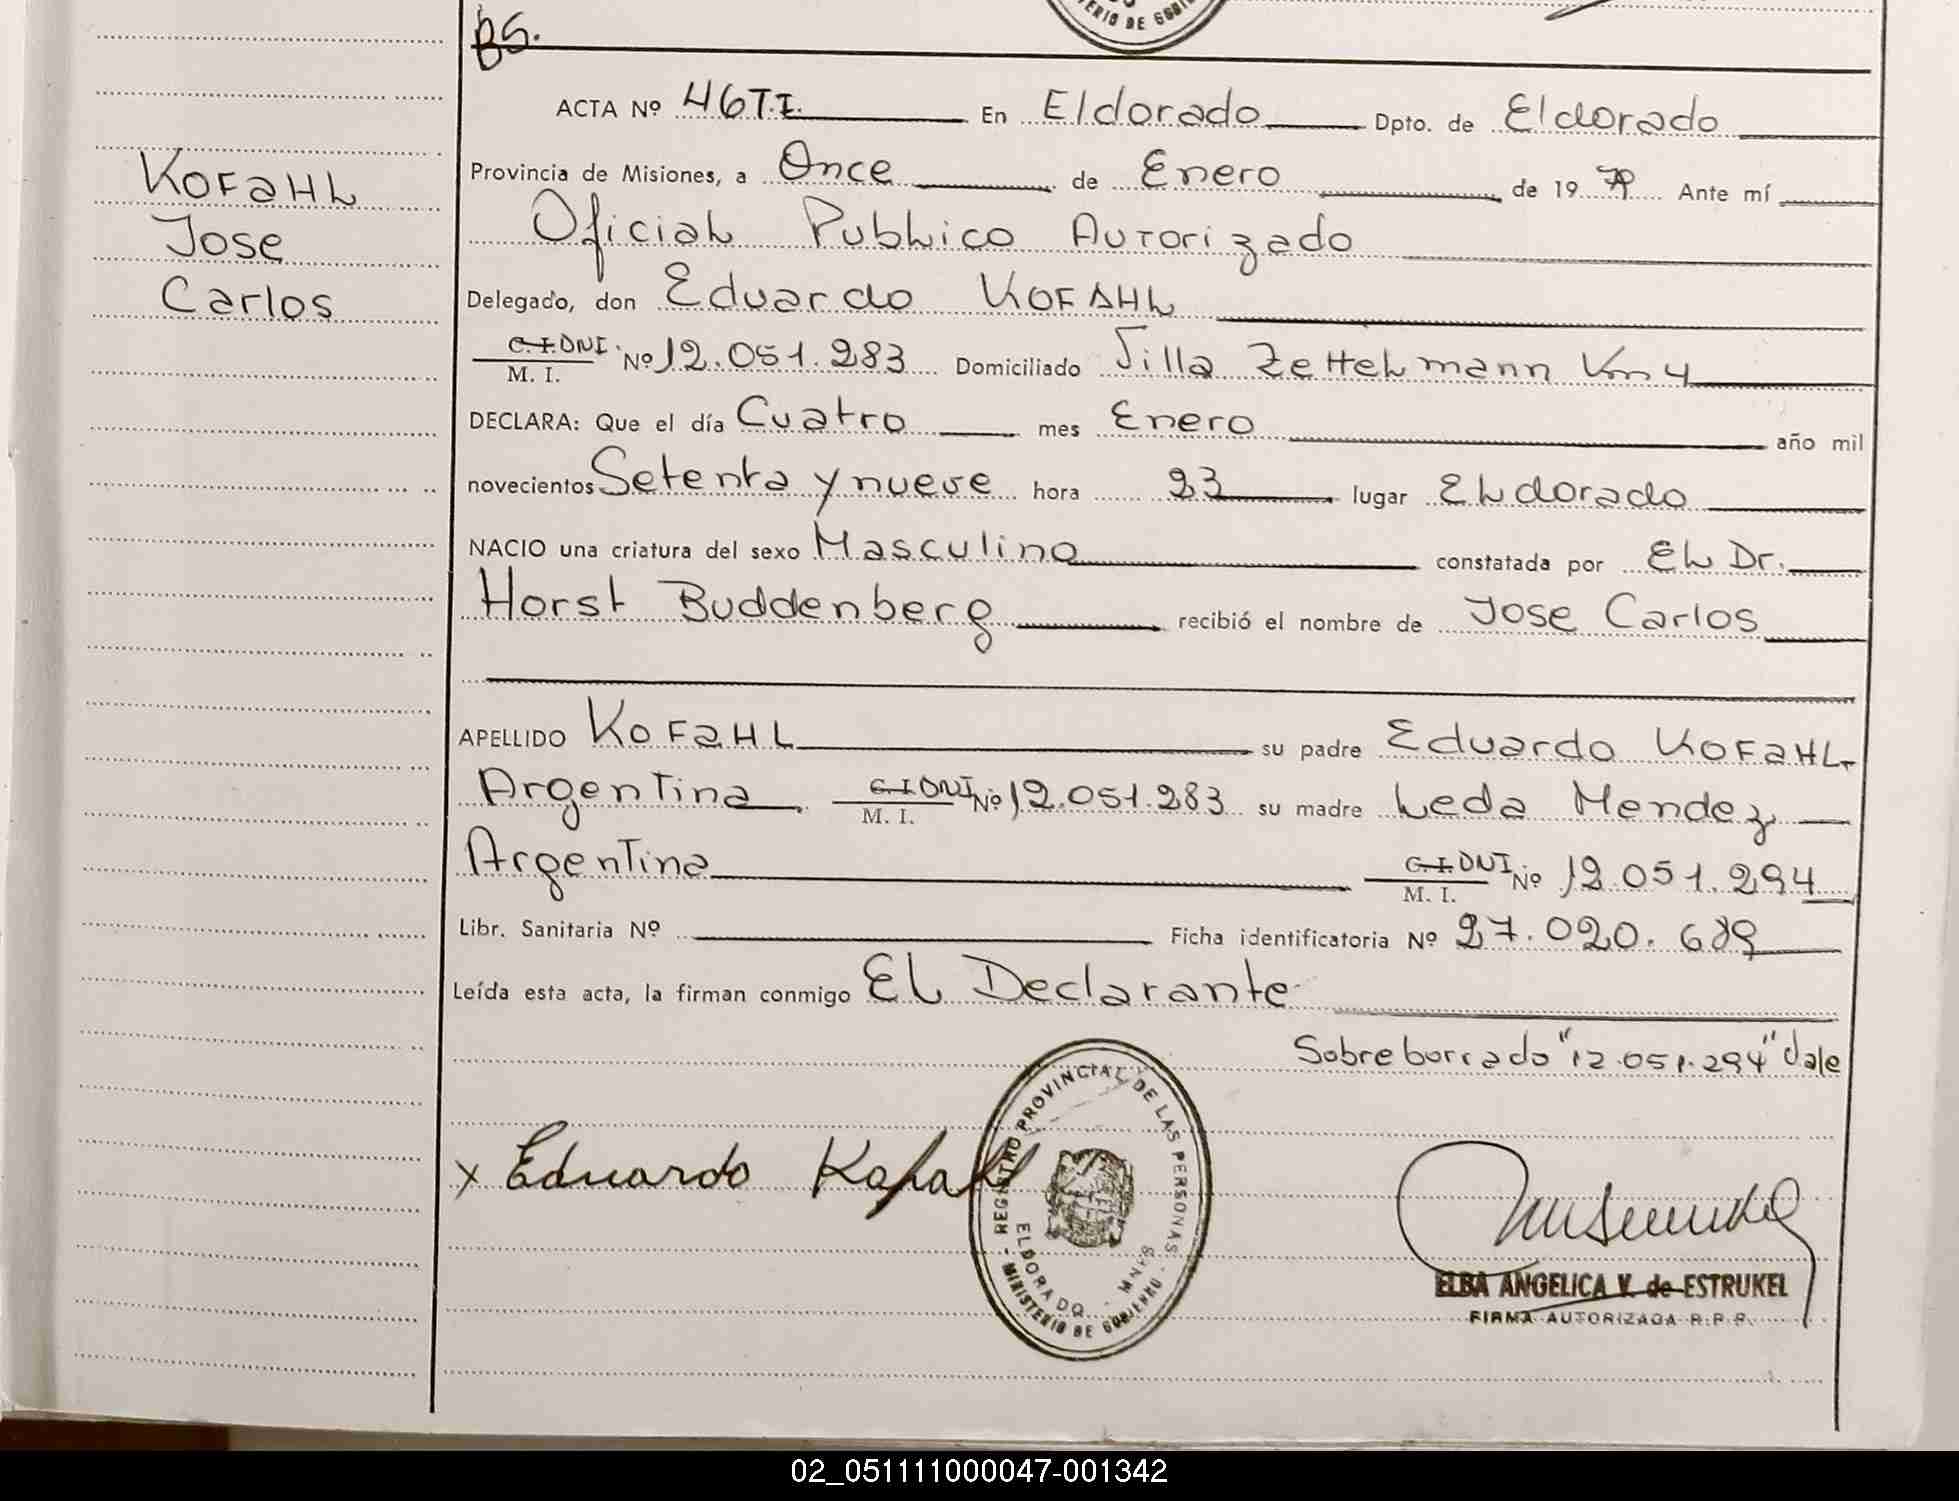 MINISTERIO DE GOBIERNO
BS.
ACTA Nº 46 T.I. En Eldorado Dpto. de Eldorado
Provincia de Misiones, a Once de Enero de 1979 Ante mí
Oficial Publico Autorizado
Delegado, don Eduardo KOFAHL
C.I. DNI. M. I. Nº 12.051.283 Domiciliado Villa Zettelmann Km 4
DECLARA: Que el día Cuatro mes Enero año mil
novecientos Setenta y nueve hora 23 lugar Eldorado
NACIO una criatura del sexo Masculino constatada por El Dr.
Horst Buddenberg recibió el nombre de Jose Carlos
APELLIDO KOFAHL su padre Eduardo KOFAHL
Argentina C.I DNI M. I. Nº 12.051.283 su madre Leda Mendez
Argentina C.I. DNI M. I. Nº 12.051.294
Libr. Sanitaria Nº Ficha identificatoria Nº 27.020.689
Leída esta acta, la firman conmigo El Declarante
Sobreborrado "12.051.294" Vale
KOFAHL
Jose
Carlos
x Eduardo Kofahl
REGISTRO PROVINCIAL DE LAS PERSONAS - MINISTERIO DE GOBIERNO -
ELDORADO - MNES
ELBA ANGELICA V. de ESTRUKEL
FIRMA AUTORIZADA R.P.P.
02_051111000047-001342